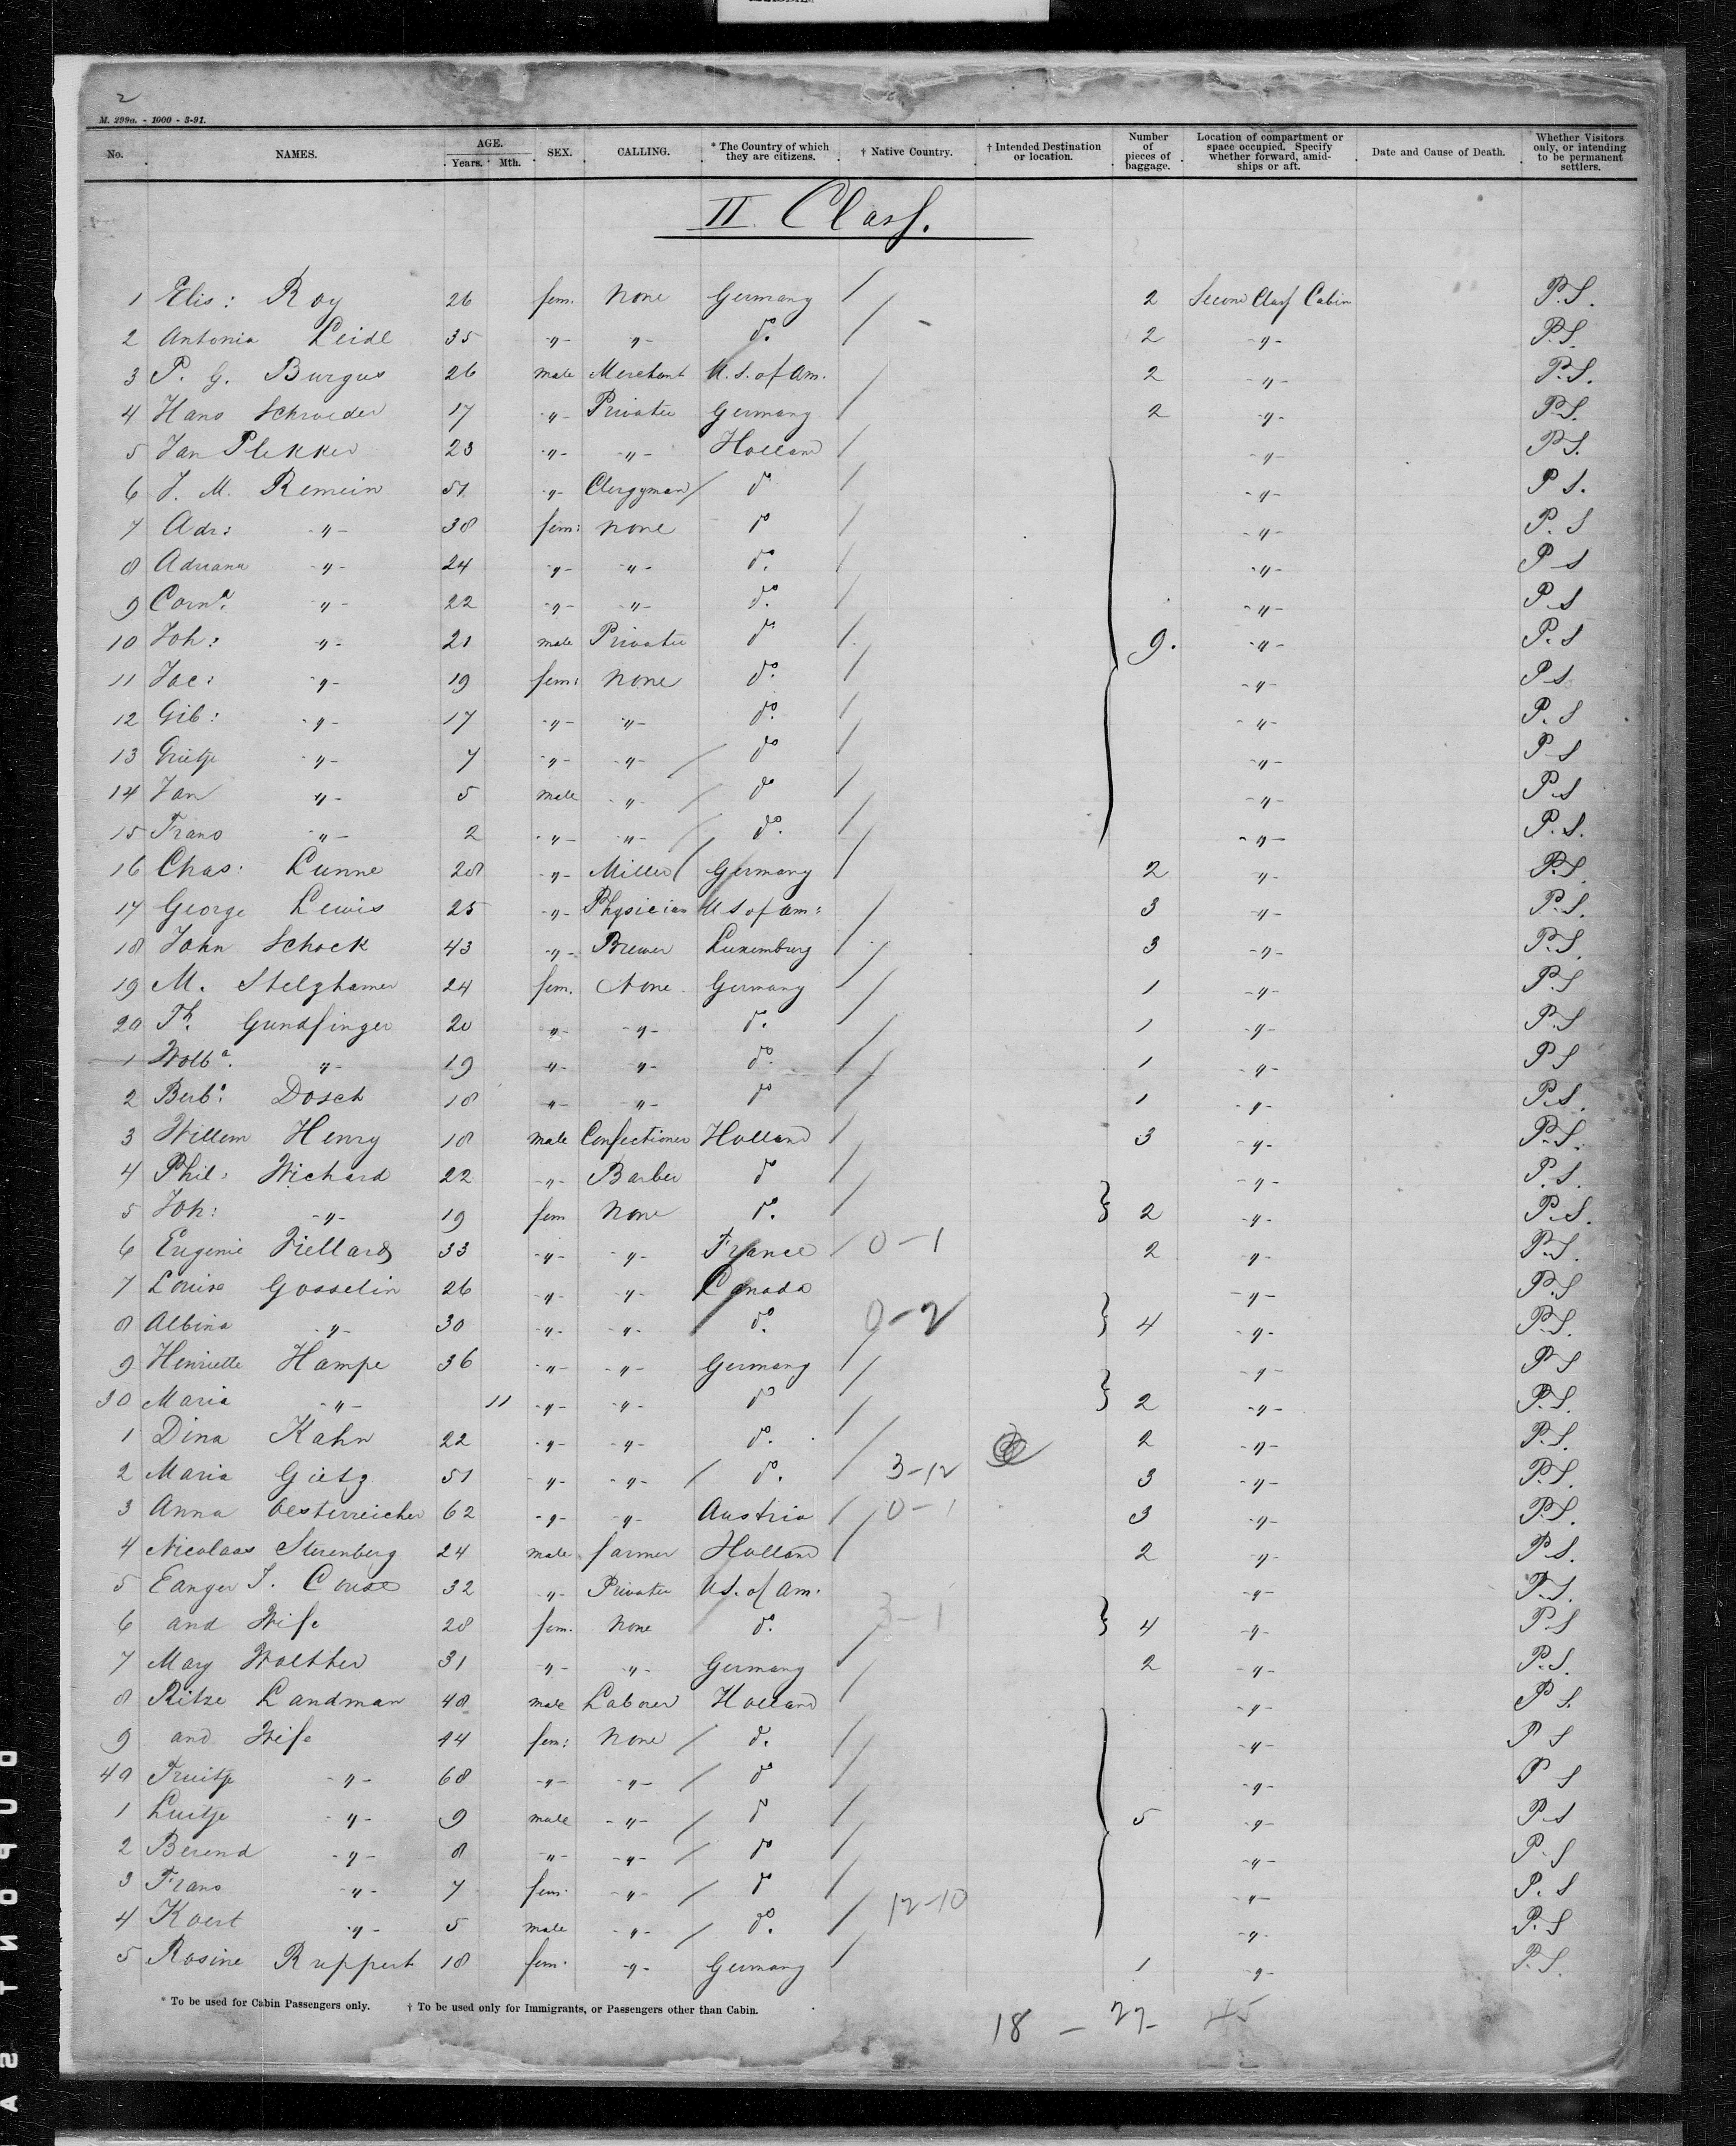 2
M. 299a. - 1000 - 3-91.
No. NAMES. AGE. Years. Mth. SEX. CALLING. * The Country of which they are citizens. † Native Country. † Intended Destination or location. Number of pieces of baggage. Location of compartment or space occupied. Specify whether forward, amidships or aft. Date and Cause of Death. Whether Visitors only, or intending to be permanent settlers.
II Class.
1 Elis: Roy 26 fem. None Germany / 2 Second Class Cabin P.S.
2 Antonia Leidl 35 -"- -"- do. / 2 -"- P.S.
3 P. G. Burgus 26 male Merchant U.S. of Am. 2 -"- P.S.
4 Hans Schroeder 17 -"- Private Germany / 2 -"- P.S.
5 Jan Plekker 23 -"- -"- Holland / -"- P.S.
6 J. M. Remein 51 -"- Clergyman / do / -"- P.S.
7 Adr: -"- 38 fem: None do / -"- P.S
8 Adriana -"- 24 -"- -"- do. / -"- P.S
9 Corna. -"- 22 -"- -"- do. / -"- P.S
10 Joh: -"- 21 male Private do / 9. -"- P.S
11 Jac: -"- 19 fem: None do. / -"- P.S
12 Gib: -"- 17 -"- -"- do. / -"- P.S
13 Grietje -"- 7 -"- -"- / do / -"- P.S
14 Jan -"- 5 male -"- / do / -"- P.S
15 Frans -"- 2 -"- -"- / do. / -"- P.S.
16 Chas: Cunne 28 -"- Miller Germany / 2 -"- P.S.
17 George Lewis 25 -"- Physician U S of Am: 3 -"- P.S.
18 John Schock 43 -"- Brewer Luxemburg / 3 -"- P.S.
19 M. Stelzhamer 24 fem. None Germany / 1 -"- P.S
20 Th. Gundfinger 20 -"- -"- do. / 1 -"- P.S
1 Wolba. -"- 19 -"- -"- do. / 1 -"- P S
2 Barb: Dosch 18 -"- -"- do / 1 -"- P.S.
3 Willem Henry 18 male Confectioner Holland / 3 -"- P.S.
4 Phil: Wichard 22 -"- Barber do / -"- P.S.
5 Joh: -"- 19 fem None do. / 2 -"- P.S.
6 Eugenie Viellard 33 -"- -"- France / 0-1 2 -"- P.S.
7 Louise Gosselin 26 -"- -"- Canada -"- P.S
8 Albina -"- 30 -"- -"- do. 0-2 4 -"- P.S.
9 Henriette Hampe 36 -"- -"- Germany / -"- P S
30 Maria -"- 11 -"- -"- do / 2 -"- P.S.
1 Dina Kahn 22 -"- -"- do. / 2 -"- P.S.
2 Maria Gietz 51 -"- -"- / do. / 3-12 3 -"- P.S.
3 Anna Oesterreicher 62 -"- -"- Austria / 0-1 3 -"- P.S.
4 Nicolaas Sterenberg 24 male farmer Holland / 2 -"- P.S.
5 Eanger J. Couse 32 -"- Private U.S. of Am. -"- P.S.
6 and Wife 28 fem. None do. 3-1 4 -"- P.S
7 Mary Walther 31 -"- -"- Germany / 2 -"- P.S.
8 Ritze Landman 48 male Laborer Holland / -"- P S.
9 and Wife 44 fem: None / do. / -"- P S
40 Truitje -"- 68 -"- -"- / do / -"- P S
1 Luitje -"- 9 male -"- / do / 5 -"- P.S
2 Berend -"- 8 -"- -"- / do / -"- P.S
3 Frans -"- 7 fem. -"- / do / -"- P.S
4 Koert -"- 5 male -"- / do. / 12-10 -"- P.S
5 Rosine Ruppert 18 fem. -"- Germany / 1 -"- P.S.
* To be used for Cabin Passengers only. † To be used only for Immigrants, or Passengers other than Cabin.
18 - 27 - 45